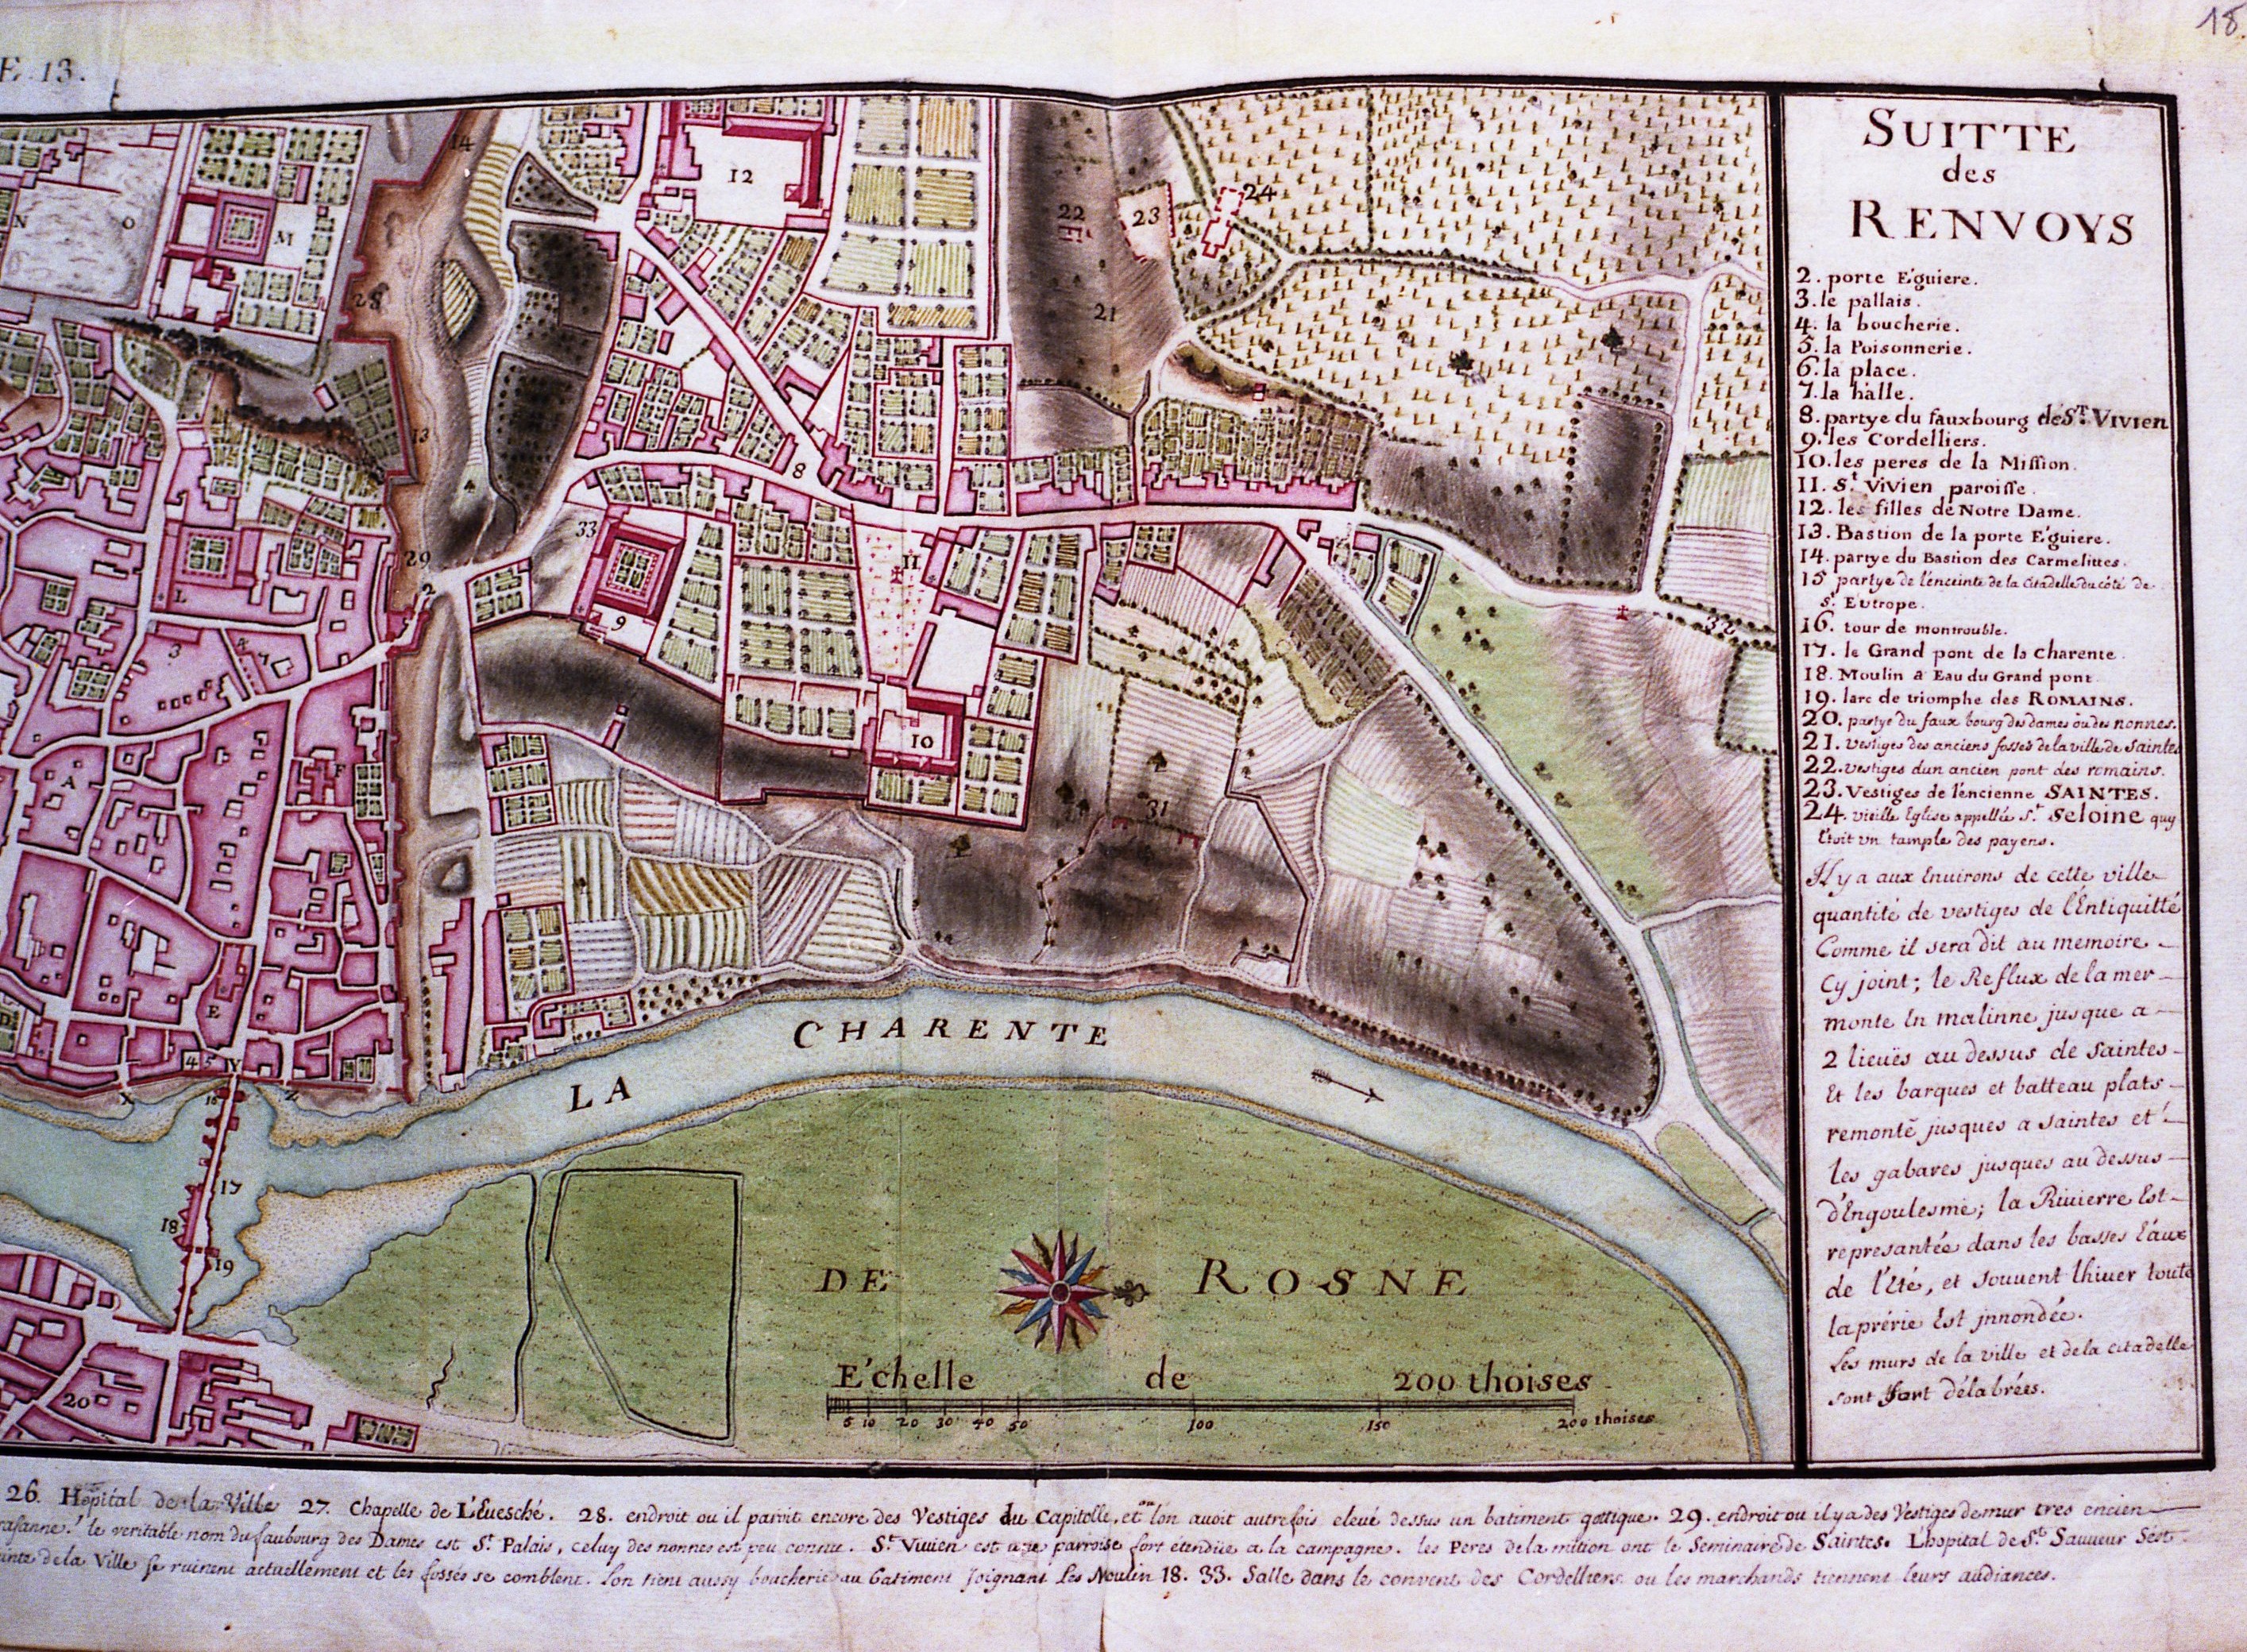 18.
E. 13.
SUITTE
des
RENVOYS
2. porte Eguiere.
3. le pallais.
4. la boucherie.
5. la Poisonnerie.
6. la place.
7. la halle.
8. partye du fauxbourg de St. Vivien
9. les Cordelliers.
10. les peres de la Mission.
11. St Vivien paroisse.
12. les filles de Notre Dame.
13. Bastion de la porte Eguiere.
14. partye du Bastion des Carmelittes.
15 partye de l'enceinte de la citadelle du côté de
St Eutrope.
16. tour de montrouble.
17. le Grand pont de la Charente.
18. Moulin a Eau du Grand pont.
19. larc de triomphe des ROMAINS.
20. partye du faux bourg des dames ou des nonnes.
21. Vestiges des anciens fossés de la ville de Saintes
22. vestiges dun ancien pont des romains.
23. Vestiges de l'encienne SAINTES.
24. vieille Eglise appellée St. Seloine quy
Etoit un tample des payens.
Il y a aux Enuirons de cette ville
quantité de vestiges de l'Entiquitté
Comme il sera dit au memoire
Cy joint; le Reflux de la mer
monte En malinne jusque a
2 lieuës au dessus de saintes
Et les barques et batteau plats
remonte jusques a saintes et
les gabares jusques au dessus
d'Engoulesme; la Riuierre Est
represantée dans les basses Eaux
de l'Eté, et souuent lhiuer toute
la prérie Est jnnondée.
Les murs de la ville et de la citadelle
sont fort délabrées.
14
12
N
O
M
22
23
24
28
21
13
8
33
29
2
11
L
9
3
4
7
32
10
A
F
31
D
E
4 5
Y
X
Z
16
LA CHARENTE
17
18
19
20
DE ROSNE
Echelle de 200 thoises
5 10 20 30 40 50 100 150 200 thoises
26. Hôpital de la Ville 27. Chapelle de L'Euesché. 28. endroit ou il paroit encore des Vestiges du Capitolle, et on l'on auoit autrefois eleué dessus un batiment gottique. 29. endroit ou il y a des Vestiges de mur tres encien
le veritable nom du faubourg des Dames est St. Palais, celuy des nonnes est peu connue. St. Viuien est une parroise fort étendüe a la campagne. les Peres de la mition ont le Seminaire de Saintes. Lhopital de St. Sauueur s'est
de la Ville se ruinent actuellement et les fossés se comblent. l'on tient aussy boucherie au batiment joignant les Moulin 18. 33. Salle dans le convent des Cordelliers ou les marchands tiennent leurs audiances.